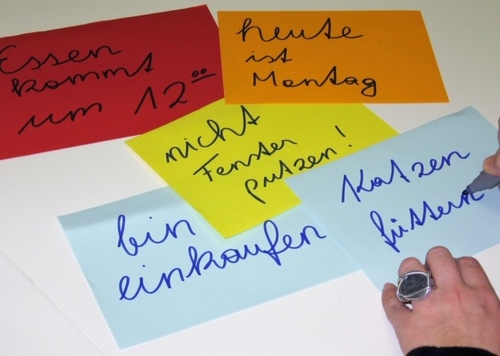 Essen
kommt
um 12⁰⁰
heute
ist
Montag
nicht
Fenster
putzen!
Katzen
füttern
bin
einkaufen